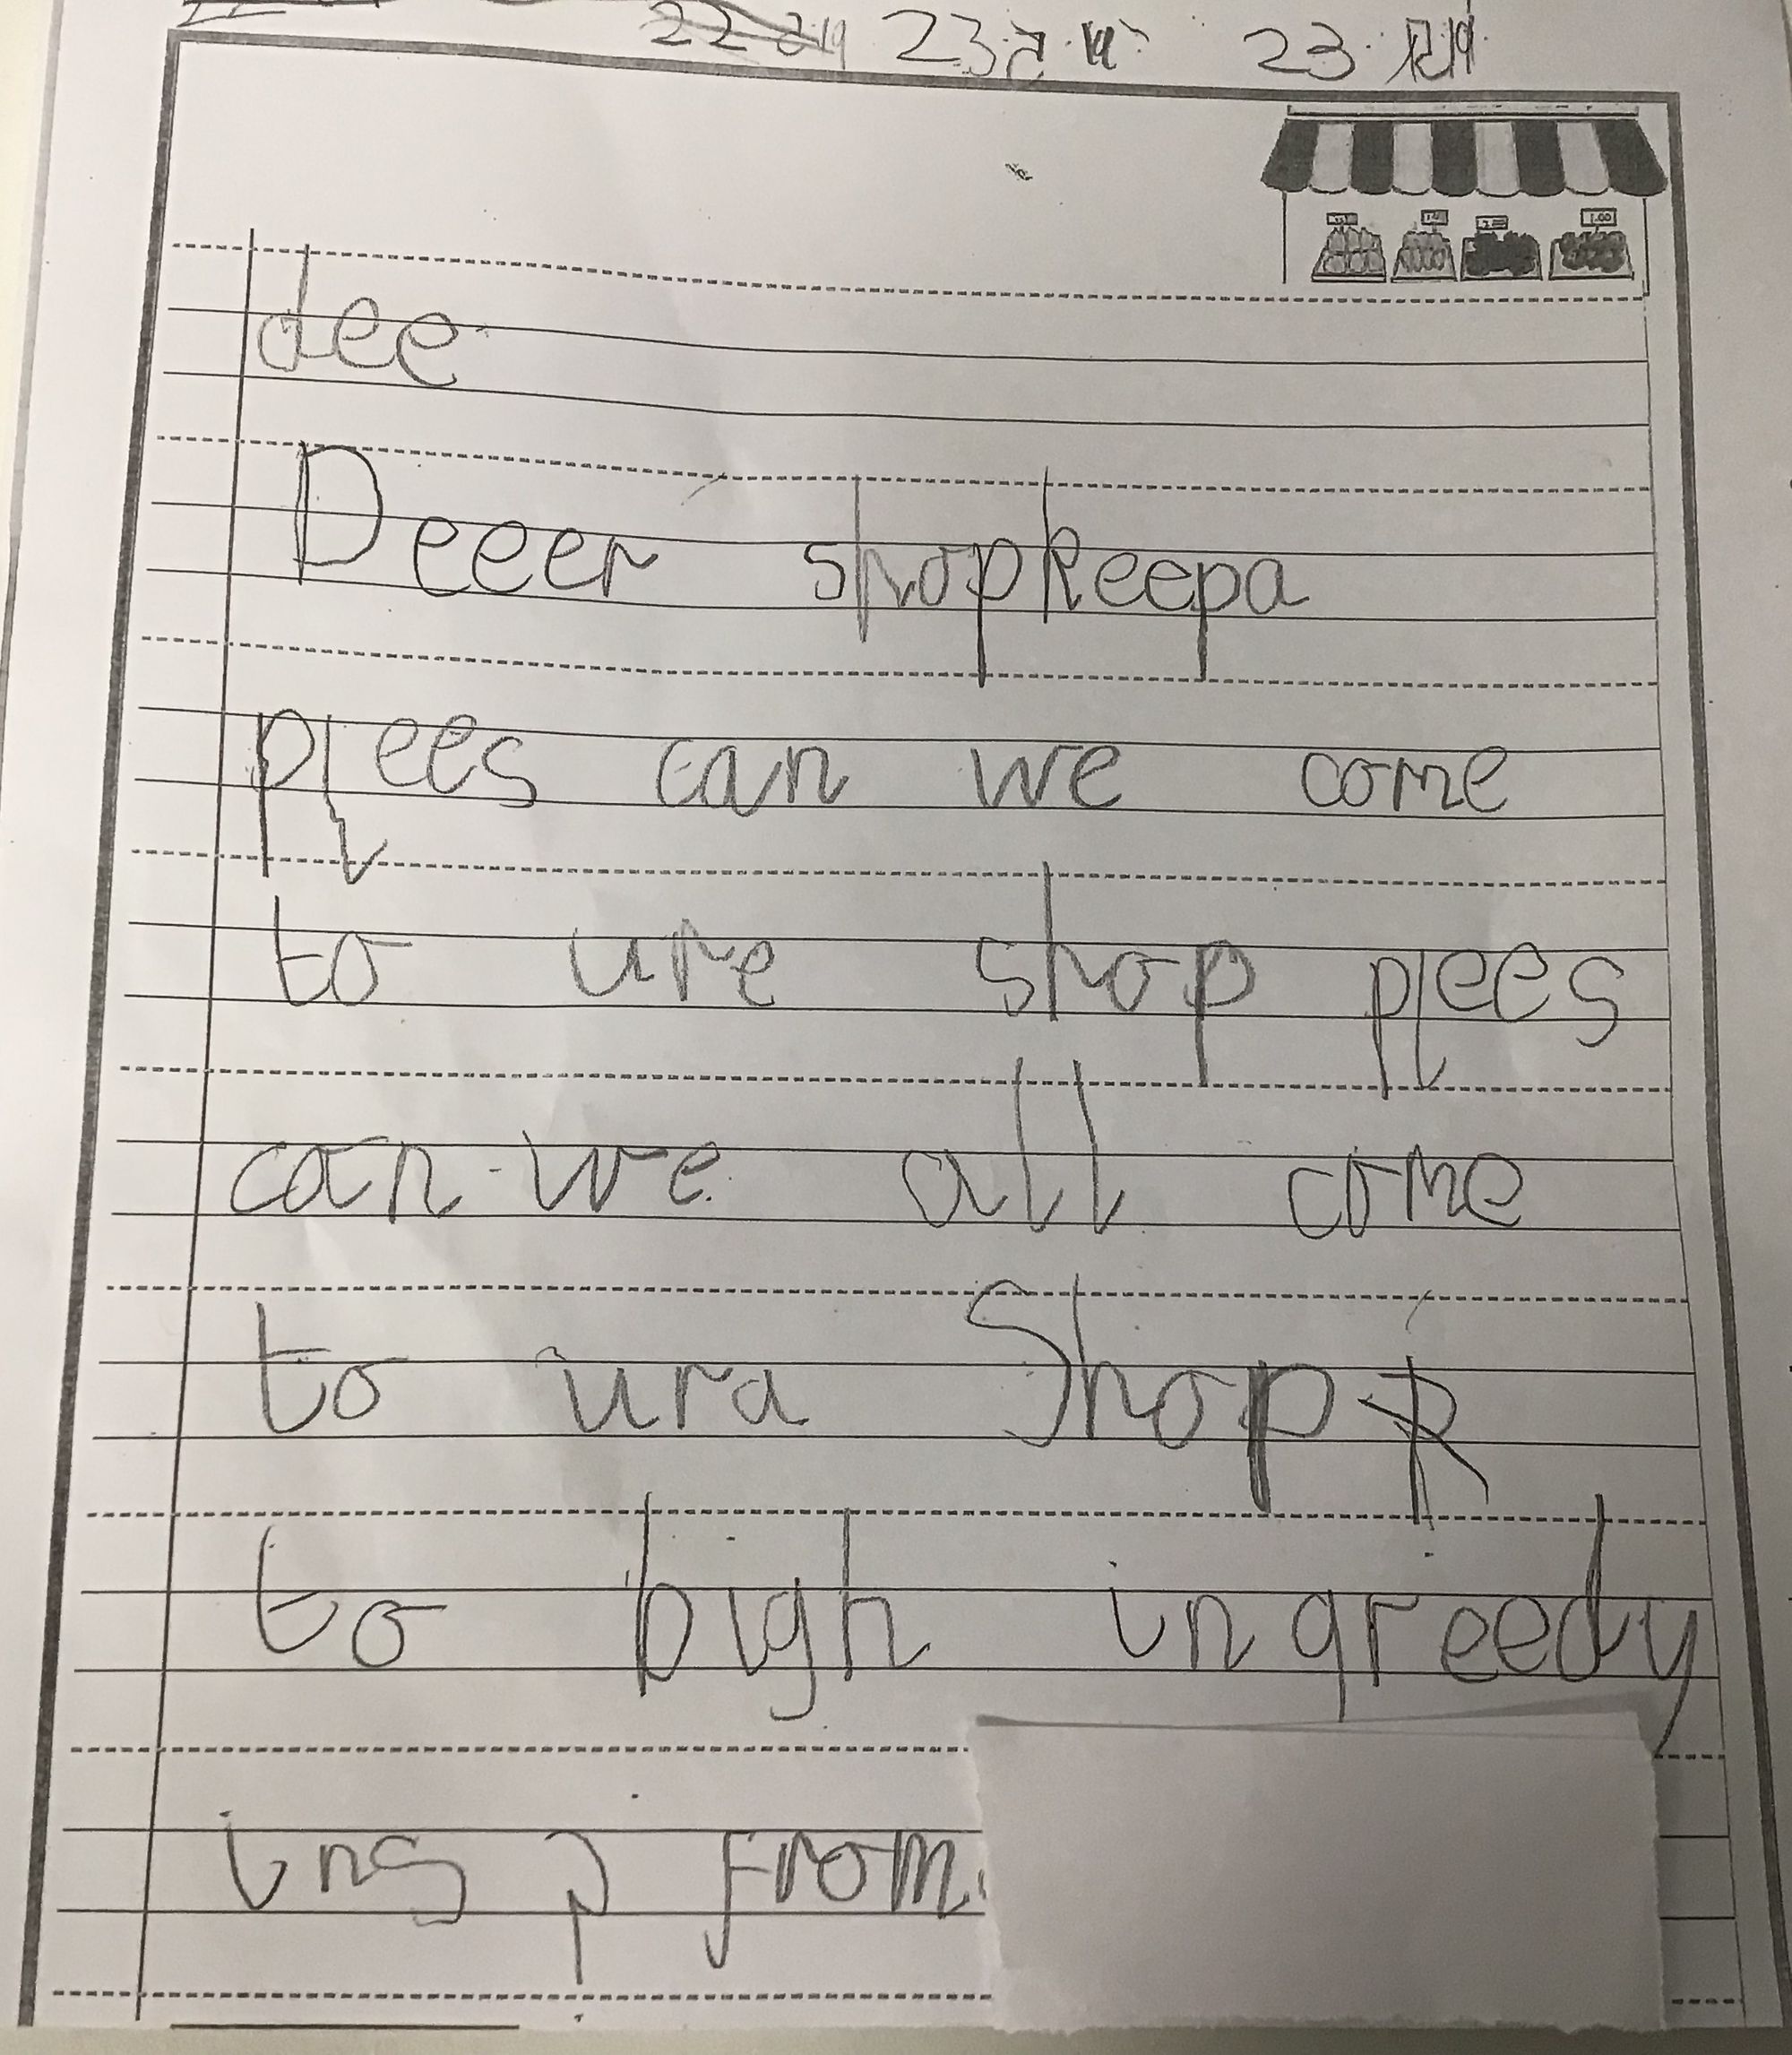 dee
Deeer shopkeepa
plees can we come
to ure shop plees
can we all come
to ura Shop
to bigh ingreedy
ins ? from